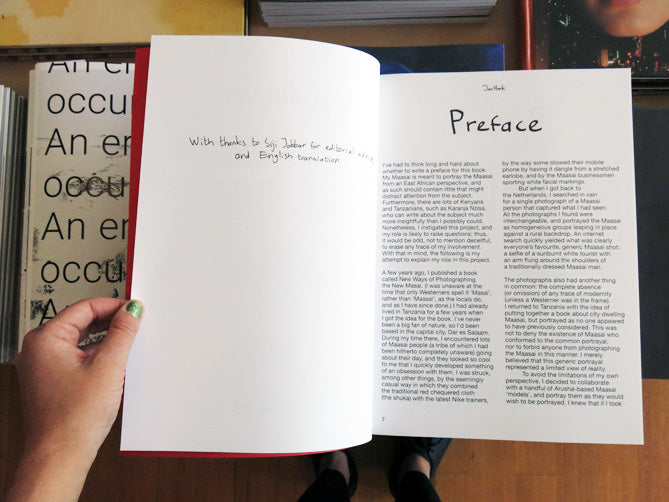 An er
occu
An er
occu
An er
occu
With thanks to Siji Jabbar for editorial advice
and English translation
Jan Hoek
Preface
I've had to think long and hard about
whether to write a preface for this book.
My Maasai is meant to portray the Maasai
from an East African perspective, and
as such should contain little that might
distract attention from the subject.
Furthermore, there are lots of Kenyans
and Tanzanians, such as Karanja Nzisa,
who can write about the subject much
more insightfully than I possibly could.
Nonetheless, I instigated this project, and
my role is likely to raise questions; thus,
it would be odd, not to mention deceitful,
to erase any trace of my involvement.
With that in mind, the following is my
attempt to explain my role in this project.
A few years ago, I published a book
called New Ways of Photographing
the New Masai. (I was unaware at the
time that only Westerners spell it 'Masai',
rather than 'Maasai', as the locals do,
and as I have since done.) I had already
lived in Tanzania for a few years when
I got the idea for the book. I've never
been a big fan of nature, so I'd been
based in the capital city, Dar es Salaam.
During my time there, I encountered lots
of Maasai people (a tribe of which I had
been hitherto completely unaware) going
about their day, and they looked so cool
to me that I quickly developed something
of an obsession with them. I was struck,
among other things, by the seemingly
casual way in which they combined
the traditional red chequered cloth
(the shuka) with the latest Nike trainers,
by the way some stowed their mobile
phone by having it dangle from a stretched
earlobe, and by the Maasai businessmen
sporting white facial markings.
But when I got back to
the Netherlands, I searched in vain
for a single photograph of a Maasai
person that captured what I had seen.
All the photographs I found were
interchangeable, and portrayed the Maasai
as homogeneous groups leaping in place
against a rural backdrop. An internet
search quickly yielded what was clearly
everyone's favourite, generic Maasai shot:
a selfie of a sunburnt white tourist with
an arm flung around the shoulders of
a traditionally dressed Maasai man.
The photographs also had another thing
in common: the complete absence
(or omission) of any trace of modernity
(unless a Westerner was in the frame).
I returned to Tanzania with the idea of
putting together a book about city dwelling
Maasai, but portrayed as no one appeared
to have previously considered. This was
not to deny the existence of Maasai who
conformed to the common portrayal,
nor to forbid anyone from photographing
the Maasai in this manner. I merely
believed that this generic portrayal
represented a limited view of reality.
To avoid the limitations of my own
perspective, I decided to collaborate
with a handful of Arusha-based Maasai
'models', and portray them as they would
wish to be portrayed. I knew that if I took
7